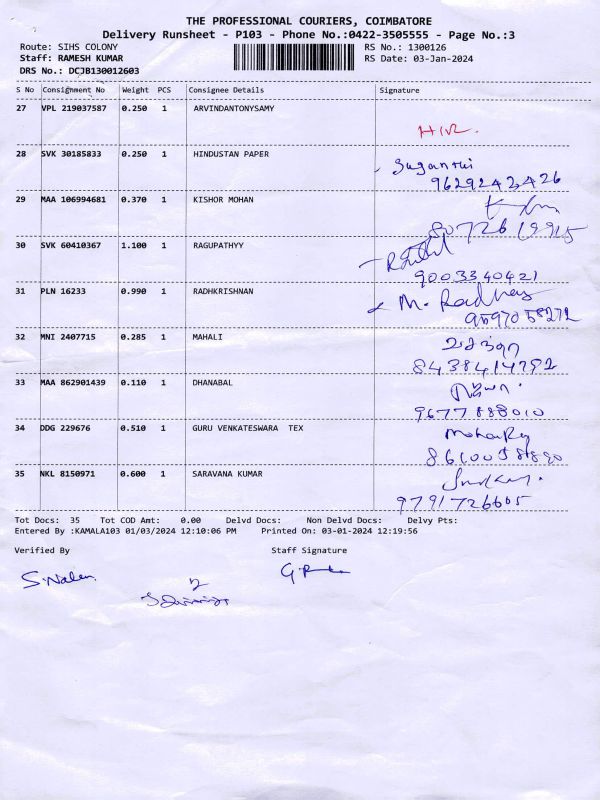 THE PROFESSIONAL COURIERS, COIMBATORE
Delivery Runsheet - P103 - Phone No.:0422-3505555 - Page No.:3
Route: SIHS COLONY RS No.: 1300126
Staff: RAMESH KUMAR RS Date: 03-Jan-2024
DRS No.: DCJB130012603
S No Consignment No Weight PCS Consignee Details Signature
27 VPL 219037587 0.250 1 ARVINDANTONYSAMY
28 SVK 30185833 0.250 1 HINDUSTAN PAPER
Suganthi
9629242426
29 MAA 106994681 0.370 1 KISHOR MOHAN
8072619915
30 SVK 60410367 1.100 1 RAGUPATHYY
9003340421
31 PLN 16233 0.990 1 RADHKRISHNAN
M. Radhey
9597058272
32 MNI 2407715 0.285 1 MAHALI
8438414792
33 MAA 862901439 0.110 1 DHANABAL
9677888010
34 DDG 229676 0.510 1 GURU VENKATESWARA TEX
35 NKL 8150971 0.600 1 SARAVANA KUMAR
9791726605
Tot Docs: 35 Tot COD Amt: 0.00 Delvd Docs: Non Delvd Docs: Delvy Pts:
Entered By :KAMALA103 01/03/2024 12:10:06 PM Printed On: 03-01-2024 12:19:56
Verified By Staff Signature